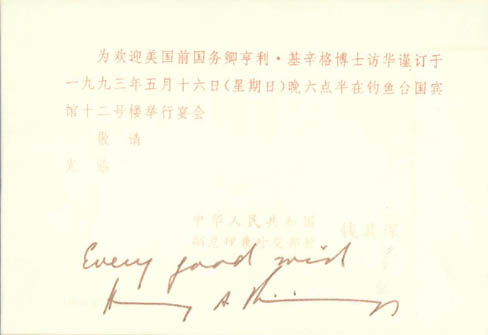 为欢迎美国前国务卿亨利·基辛格博士访华谨订于
一九九三年五月十六日(星期日)晚六点半在钓鱼台国宾
馆十二号楼举行宴会
敬请
光临
中华人民共和国
副总理兼外交部长 钱其琛
Every good wish